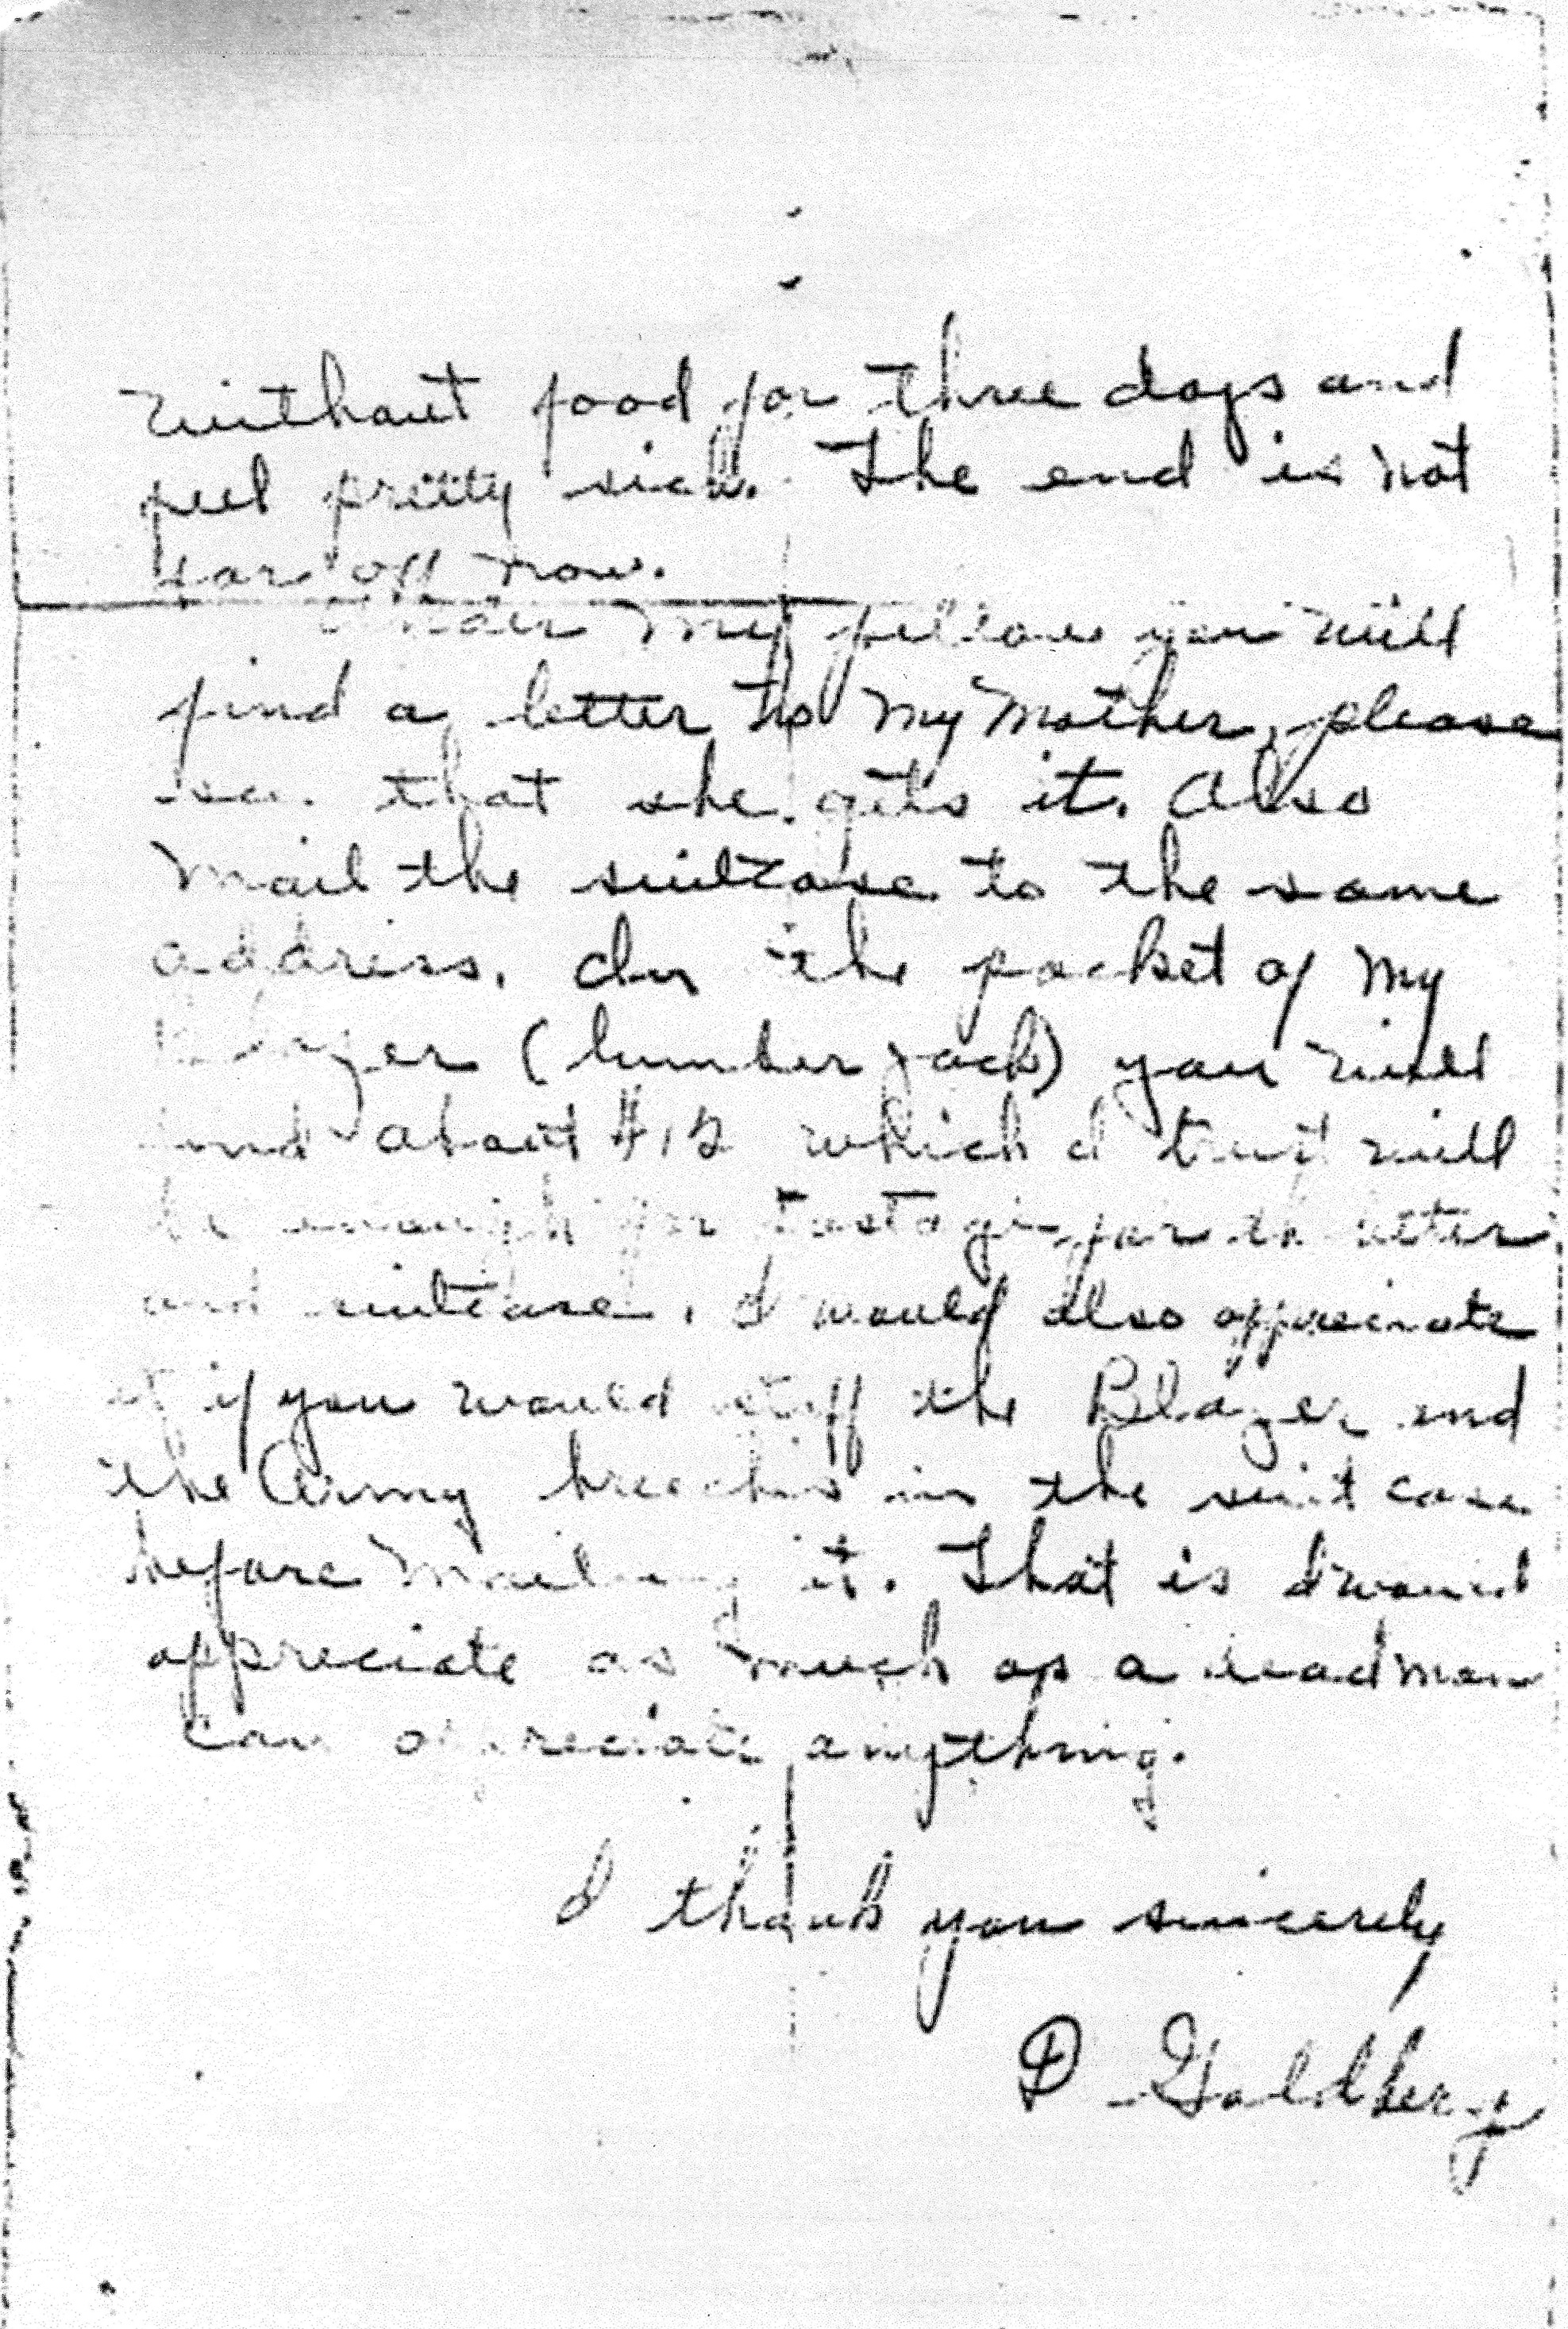 without food for three days and
feel pretty sick. The end is not
far off now.
Under my pillow you will
find a letter to my Mother, please
see that she gets it. Also
Mail the suitcase to the same
address. In the pocket of my
Blazer (lumber jack) you will
find about $12 which I trust will
be enough for Postage for the letter
and suitcase. I would also appreciate
it if you would stuff the Blazer and
the Army breeches in the suit case
before Mailing it. That is I would
appreciate as much as a dead man
can appreciate anything.
I thank you sincerely
D Goldberg